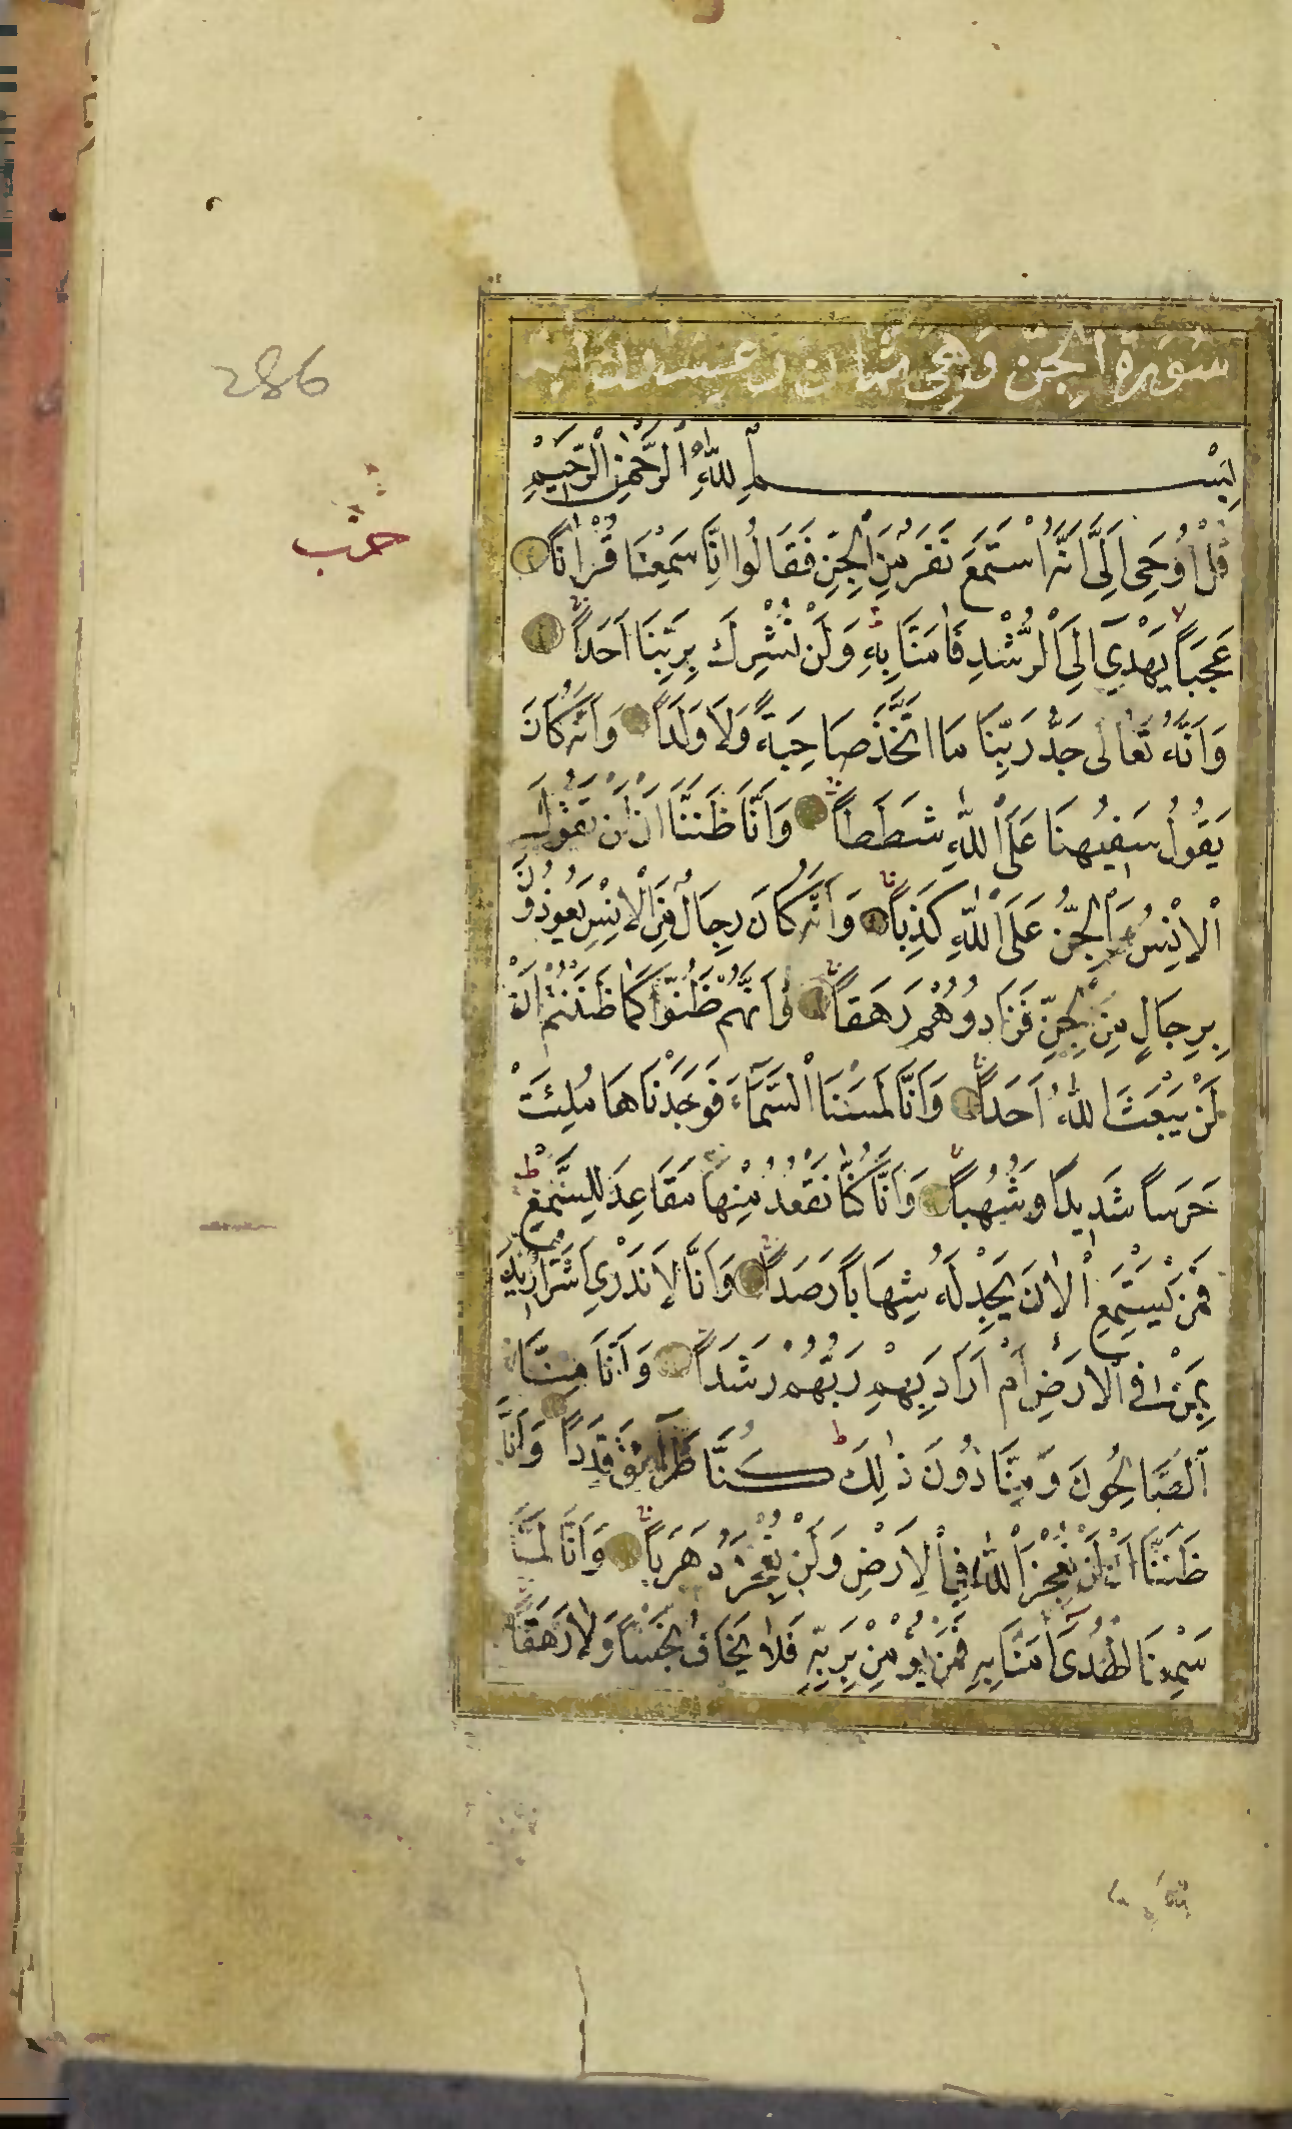 سورة الجن وهي ثمان وعشرون اية
286
بِسْمِ اللّٰهِ الرَّحْمٰنِ الرَّحِيمِ
حزب
قُلْ اُوحِىَ اِلَىَّ اَنَّهُ اسْتَمَعَ نَفَرٌ مِنَ الْجِنِّ فَقَالُوا اِنَّا سَمِعْنَا قُرْاٰنًا
عَجَبًا يَهْدِي اِلَى الرُّشْدِ فَاٰمَنَّا بِهِ وَلَنْ نُشْرِكَ بِرَبِّنَا اَحَدًا
وَاَنَّهُ تَعَالٰى جَدُّ رَبِّنَا مَا اتَّخَذَ صَاحِبَةً وَلَا وَلَدًا وَاَنَّهُ كَانَ
يَقُولُ سَفِيهُنَا عَلَى اللّٰهِ شَطَطًا وَاَنَّا ظَنَنَّا اَنْ لَنْ تَقُولَ
الْاِنْسُ وَالْجِنُّ عَلَى اللّٰهِ كَذِبًا وَاَنَّهُ كَانَ رِجَالٌ مِنَ الْاِنْسِ يَعُوذُونَ
بِرِجَالٍ مِنَ الْجِنِّ فَزَادُوهُمْ رَهَقًا وَاَنَّهُمْ ظَنُّوا كَمَا ظَنَنْتُمْ اَنْ
لَنْ يَبْعَثَ اللّٰهُ اَحَدًا وَاَنَّا لَمَسْنَا السَّمَاءَ فَوَجَدْنَاهَا مُلِئَتْ
حَرَسًا شَدِيدًا وَشُهُبًا وَاَنَّا كُنَّا نَقْعُدُ مِنْهَا مَقَاعِدَ لِلسَّمْعِ
فَمَنْ يَسْتَمِعِ الْاٰنَ يَجِدْ لَهُ شِهَابًا رَصَدًا وَاَنَّا لَا نَدْرِي اَشَرٌّ اُرِيدَ
بِمَنْ فِي الْاَرْضِ اَمْ اَرَادَ بِهِمْ رَبُّهُمْ رَشَدًا وَاَنَّا مِنَّا
الصَّالِحُونَ وَمِنَّا دُونَ ذٰلِكَ كُنَّا طَرَائِقَ قِدَدًا وَاَنَّا
ظَنَنَّا اَنْ لَنْ نُعْجِزَ اللّٰهَ فِي الْاَرْضِ وَلَنْ نُعْجِزَهُ هَرَبًا وَاَنَّا لَمَّا
سَمِعْنَا الْهُدٰى اٰمَنَّا بِهِ فَمَنْ يُؤْمِنْ بِرَبِّهِ فَلَا يَخَافُ بَخْسًا وَلَا رَهَقًا